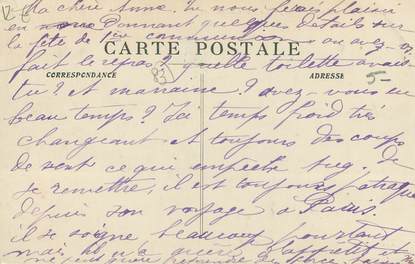 Ma chère Anne. Tu nous ferais plaisir
en nous donnant quelques détails sur
la fête de 1ère communion où avez-vs
CARTE POSTALE
fait le repas? quelle toilette avais
CORRESPONDANCE
ADRESSE
tu? et marraine? avez-vous eu
beau temps? Ici temps froid très
changeant et toujours des coups
de vent ce qui empêche de
se remettre, il est toujours patraque
depuis son voyage à Paris.
il se soigne beaucoup pourtant
mais il n'a guère d'appétit et